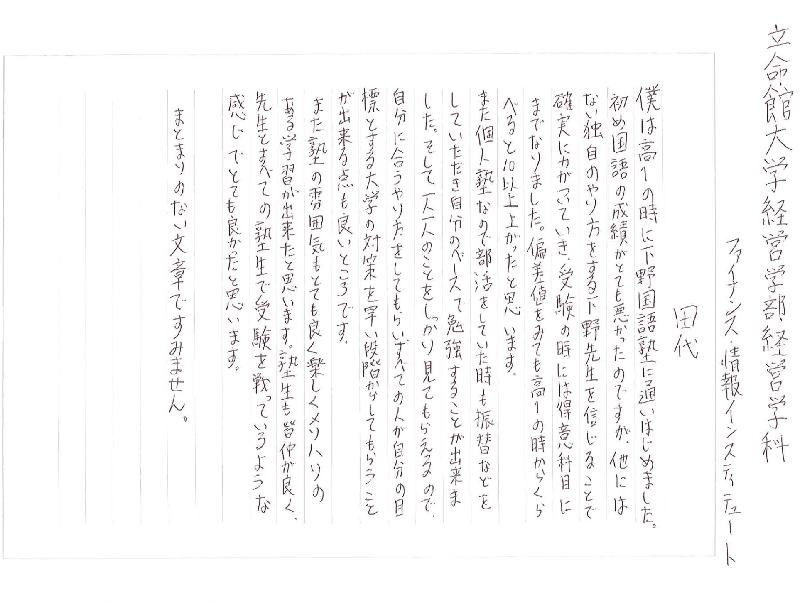 立命館大学経営学部経営学科
ファイナンス・情報インスティテュート
田代
僕は高1の時に下野国語塾に通いはじめました。
初め国語の成績がとても悪かったのですが、他には
ない独自のやり方をする下野先生を信じることで
確実に力がついていき、受験の時には得意科目に
までなりました。偏差値をみても高1の時からくら
べると10以上上がったと思います。
また個人塾なので部活をしていた時も振替などを
していただき自分のペースで勉強することが出来ま
した。そして一人一人のことをしっかり見てもらえるので、
自分に合うやり方をしてもらいすべての人が自分の目
標とする大学の対策を早い段階からしてもらうこと
が出来る点も良いところです。
また塾の雰囲気もとても良く楽しくメリハリの
ある学習が出来たと思います。塾生も皆仲が良く、
先生とすべての塾生で受験を戦っているような
感じでとても良かたと思います。
まとまりのない文章ですみません。